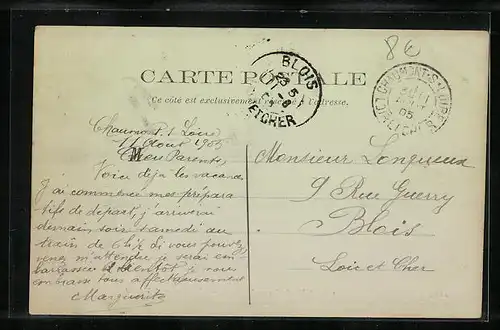 8€
CARTE POSTALE
Ce côté est exclusivement réservé à l'adresse.
BLOIS
LOIR ET CHER
CHAUMONT-S-LOIRE
LOIR-ET-CHER
05
Chaumont s Loire
11 Aout 1905
Chers Parents
Voici déjà les vacances
j'ai commencé mes prépara
tifs de départ, j'arriverai
demain soir samedi au
train de 6h½ si vous pouvez
venez m'attendre je serai em
barrassée à bientôt je vous
embrasse tous affectueusement
Marguerite
Monsieur Longueux
9 Rue Guerry
Blois
Loir et Cher